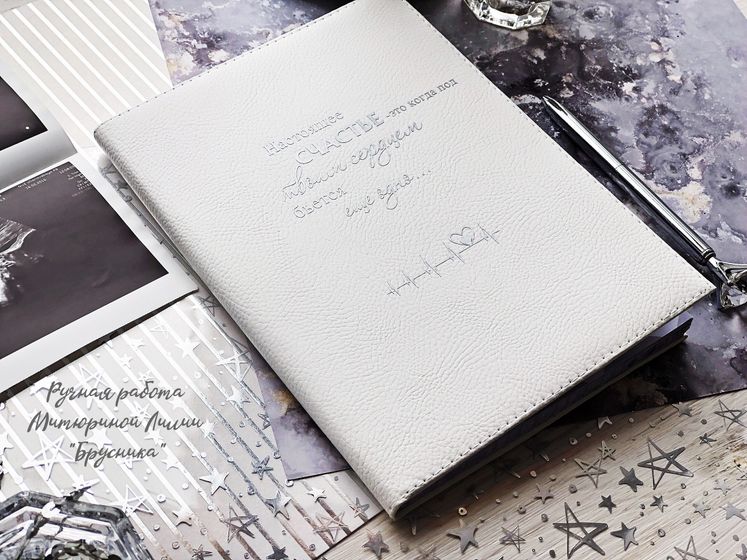 Настоящее
СЧАСТЬЕ -это когда под
твоим сердцем
бьется
еще одно...
Ручная работа
Митюриной Лилии
"Брусника"